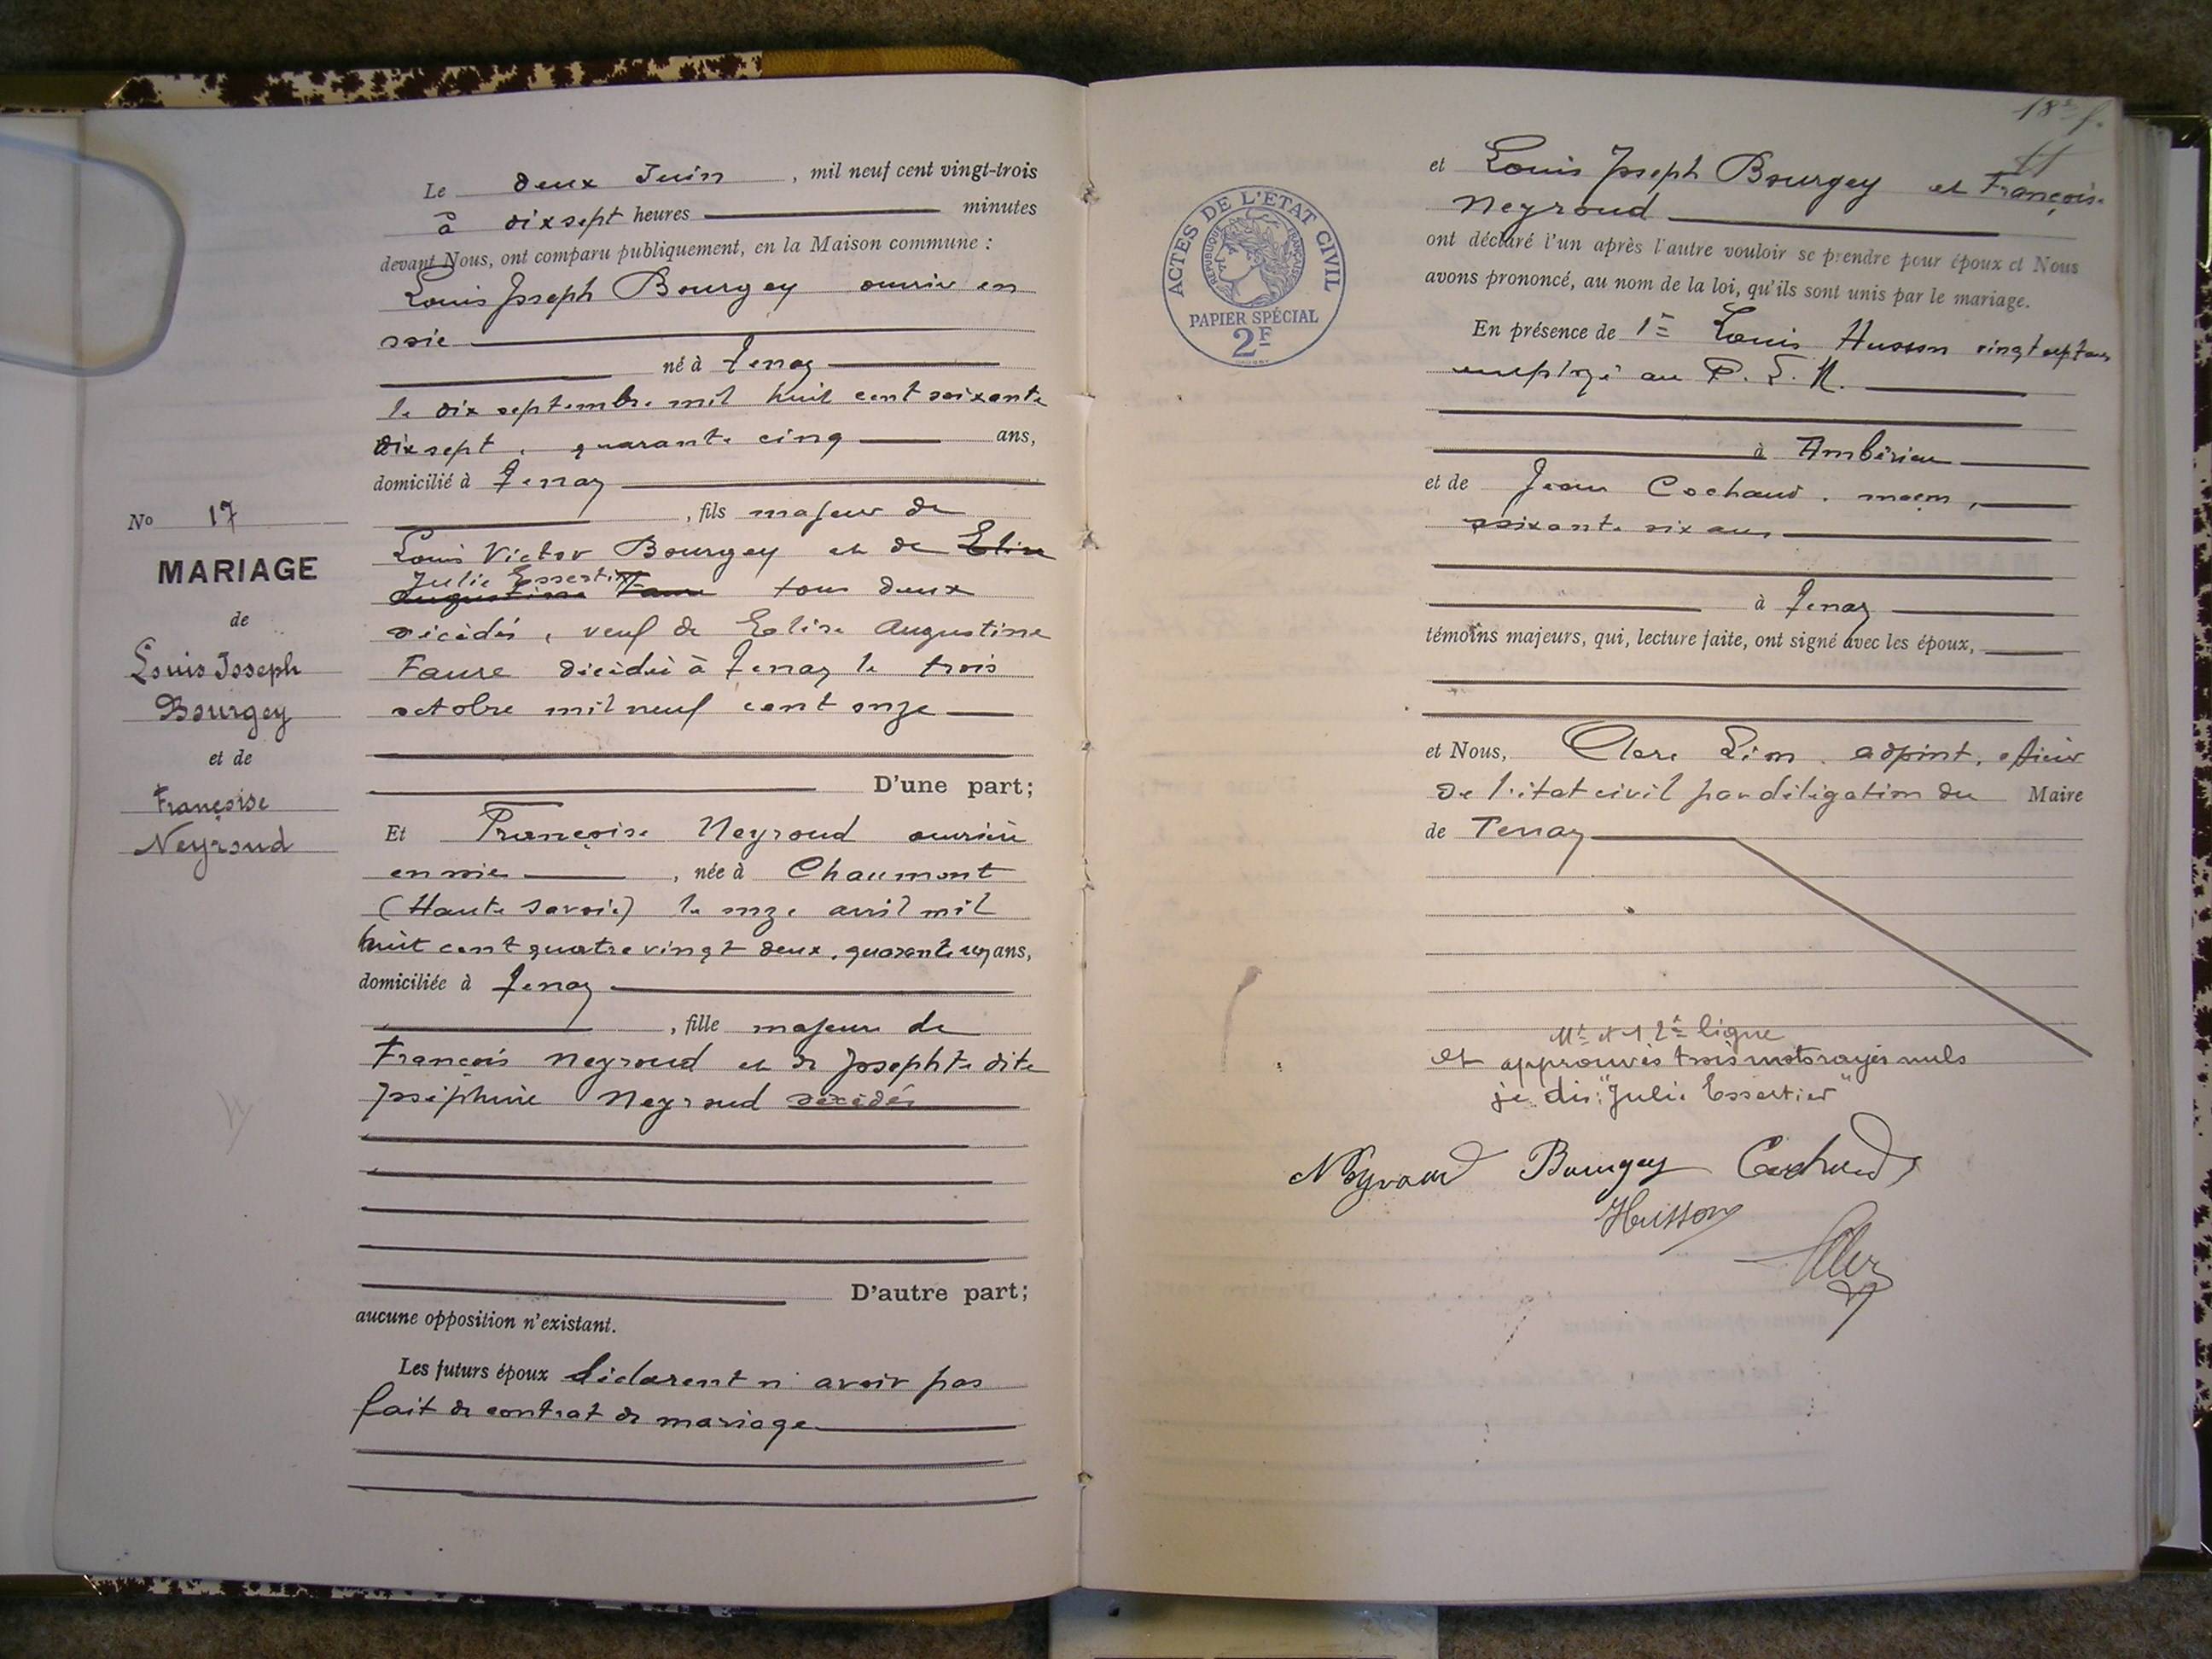 Le deux Juin, mil neuf cent vingt-trois
à dix sept heures minutes
devant Nous, ont comparu publiquement, en la Maison commune :
Louis Joseph Bourgey ouvrier en
soie
né à Tenay
le dix septembre mil huit cent soixante
dix sept, quarante cinq ans,
domicilié à Tenay
, fils majeur de
Louis Victor Bourgey et de Elise
Julie Essertier
Augustine Faure tous deux
décédés, veuf de Elise Augustine
Faure décédée à Tenay le trois
octobre mil neuf cent onze
D'une part;
No 17
MARIAGE
de
Louis Joseph
Bourgey
et de
Françoise
Neyroud
Et Françoise Neyroud ouvrière
en soie, née à Chaumont
(Haute Savoie) le onze avril mil
huit cent quatre vingt deux, quarante un ans,
domiciliée à Tenay
, fille majeure de
François Neyroud et de Josephte dite
Joséphine Neyroud décédés
D'autre part;
aucune opposition n'existant.
Les futurs époux déclarent n'avoir pas
fait de contrat de mariage
18e f.
ACTES DE L'ETAT CIVIL
REPUBLIQUE FRANÇAISE
PAPIER SPÉCIAL
2F
et Louis Joseph Bourgey et Françoise
Neyroud
ont déclaré l'un après l'autre vouloir se prendre pour époux et Nous
avons prononcé, au nom de la loi, qu'ils sont unis par le mariage.
En présence de 1e Louis Husson vingt sept ans
employé au P. L. M.
à Ambérieu
et de Jean Cochaud, maçon,
soixante six ans
à Tenay
témoins majeurs, qui, lecture faite, ont signé avec les époux,
et Nous, Clerc Léon, adjoint, officier
de l'état civil par délégation du Maire
de Tenay
11e et 12e ligne
et approuvés trois mots rayés nuls
je dis: "Julie Essertier"
Neyroud Bourgey Cochaud
Husson
Clerc